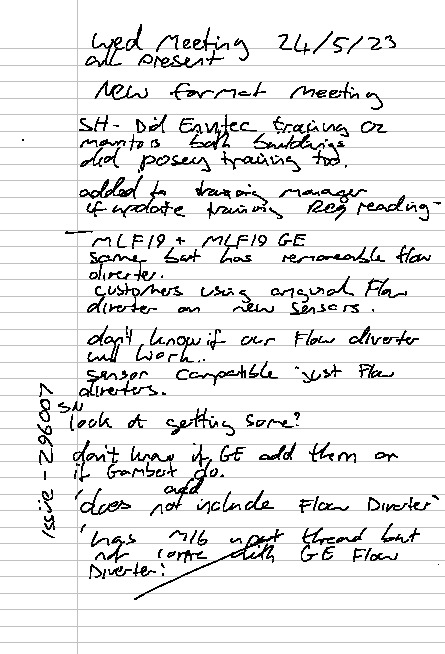 Wed Meeting 24/5/23
all present
New format meeting
SH - Did Envitec training O2
monitors both buildings
did posey training too.
added to training manager
if update training Req reading -
- MLF19 + MLF19 GE
same but has removeable flow
diverter.
customers using original Flow
diverter on new sensors.
don't know if our Flow diverter
will work..
sensor compatible just Flow
diverters.
SN
look at getting some?
don't know if GE add them or
if Gambert do.
add
'does not include Flow Diverter'
'has M16 input thread but
not come with GE Flow
Diverter!
Issue - 296007